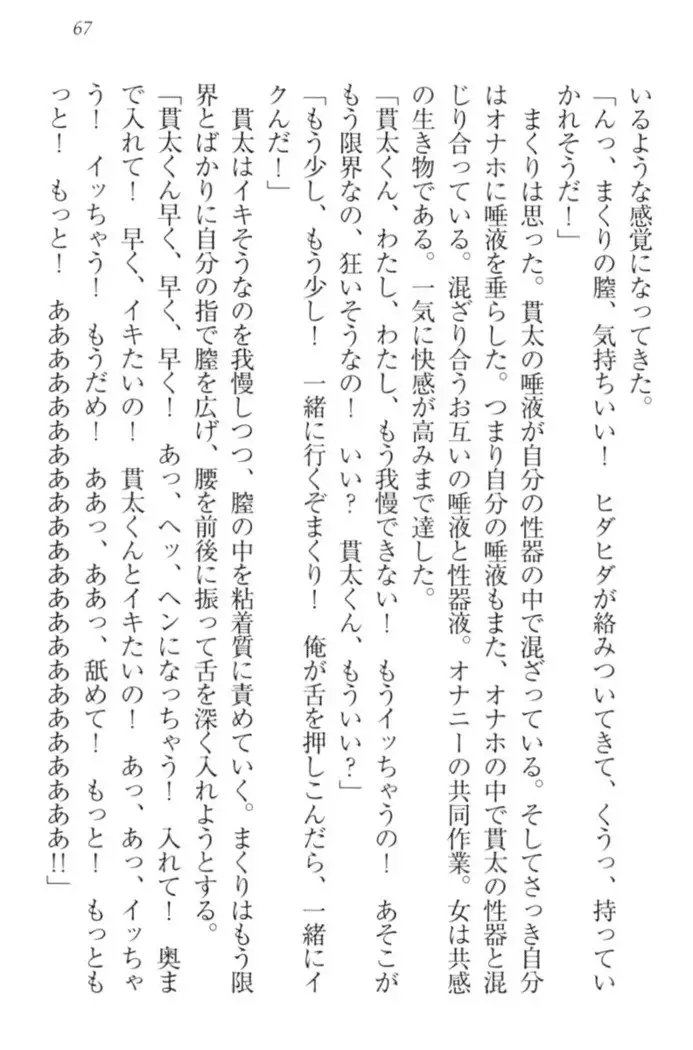 67
いるような感覚になってきた。
「んっ、まくりの膣、気持ちいい！　ヒダヒダが絡みついてきて、くうっ、持ってい
かれそうだ！」
まくりは思った。貫太の唾液が自分の性器の中で混ざっている。そしてさっき自分
はオナホに唾液を垂らした。つまり自分の唾液もまた、オナホの中で貫太の性器と混
じり合っている。混ざり合うお互いの唾液と性器液。オナニーの共同作業。女は共感
の生き物である。一気に快感が高みまで達した。
「貫太くん、わたし、わたし、もう我慢できない！　もうイッちゃうの！　あそこが
もう限界なの、狂いそうなの！　いい？　貫太くん、もういい？」
「もう少し、もう少し！　一緒に行くぞまくり！　俺が舌を押しこんだら、一緒にイ
クんだ！」
貫太はイキそうなのを我慢しつつ、膣の中を粘着質に責めていく。まくりはもう限
界とばかりに自分の指で膣を広げ、腰を前後に振って舌を深く入れようとする。
「貫太くん早く、早く、早く！　あっ、ヘッ、ヘンになっちゃう！　入れて！　奥ま
で入れて！　早く、イキたいの！　貫太くんとイキたいの！　あっ、あっ、イッちゃ
う！　イッちゃう！　もうだめ！　ああっ、ああっ、舐めて！　もっと！　もっとも
っと！　もっと！　ああああああああああああああああああああああああ!!」